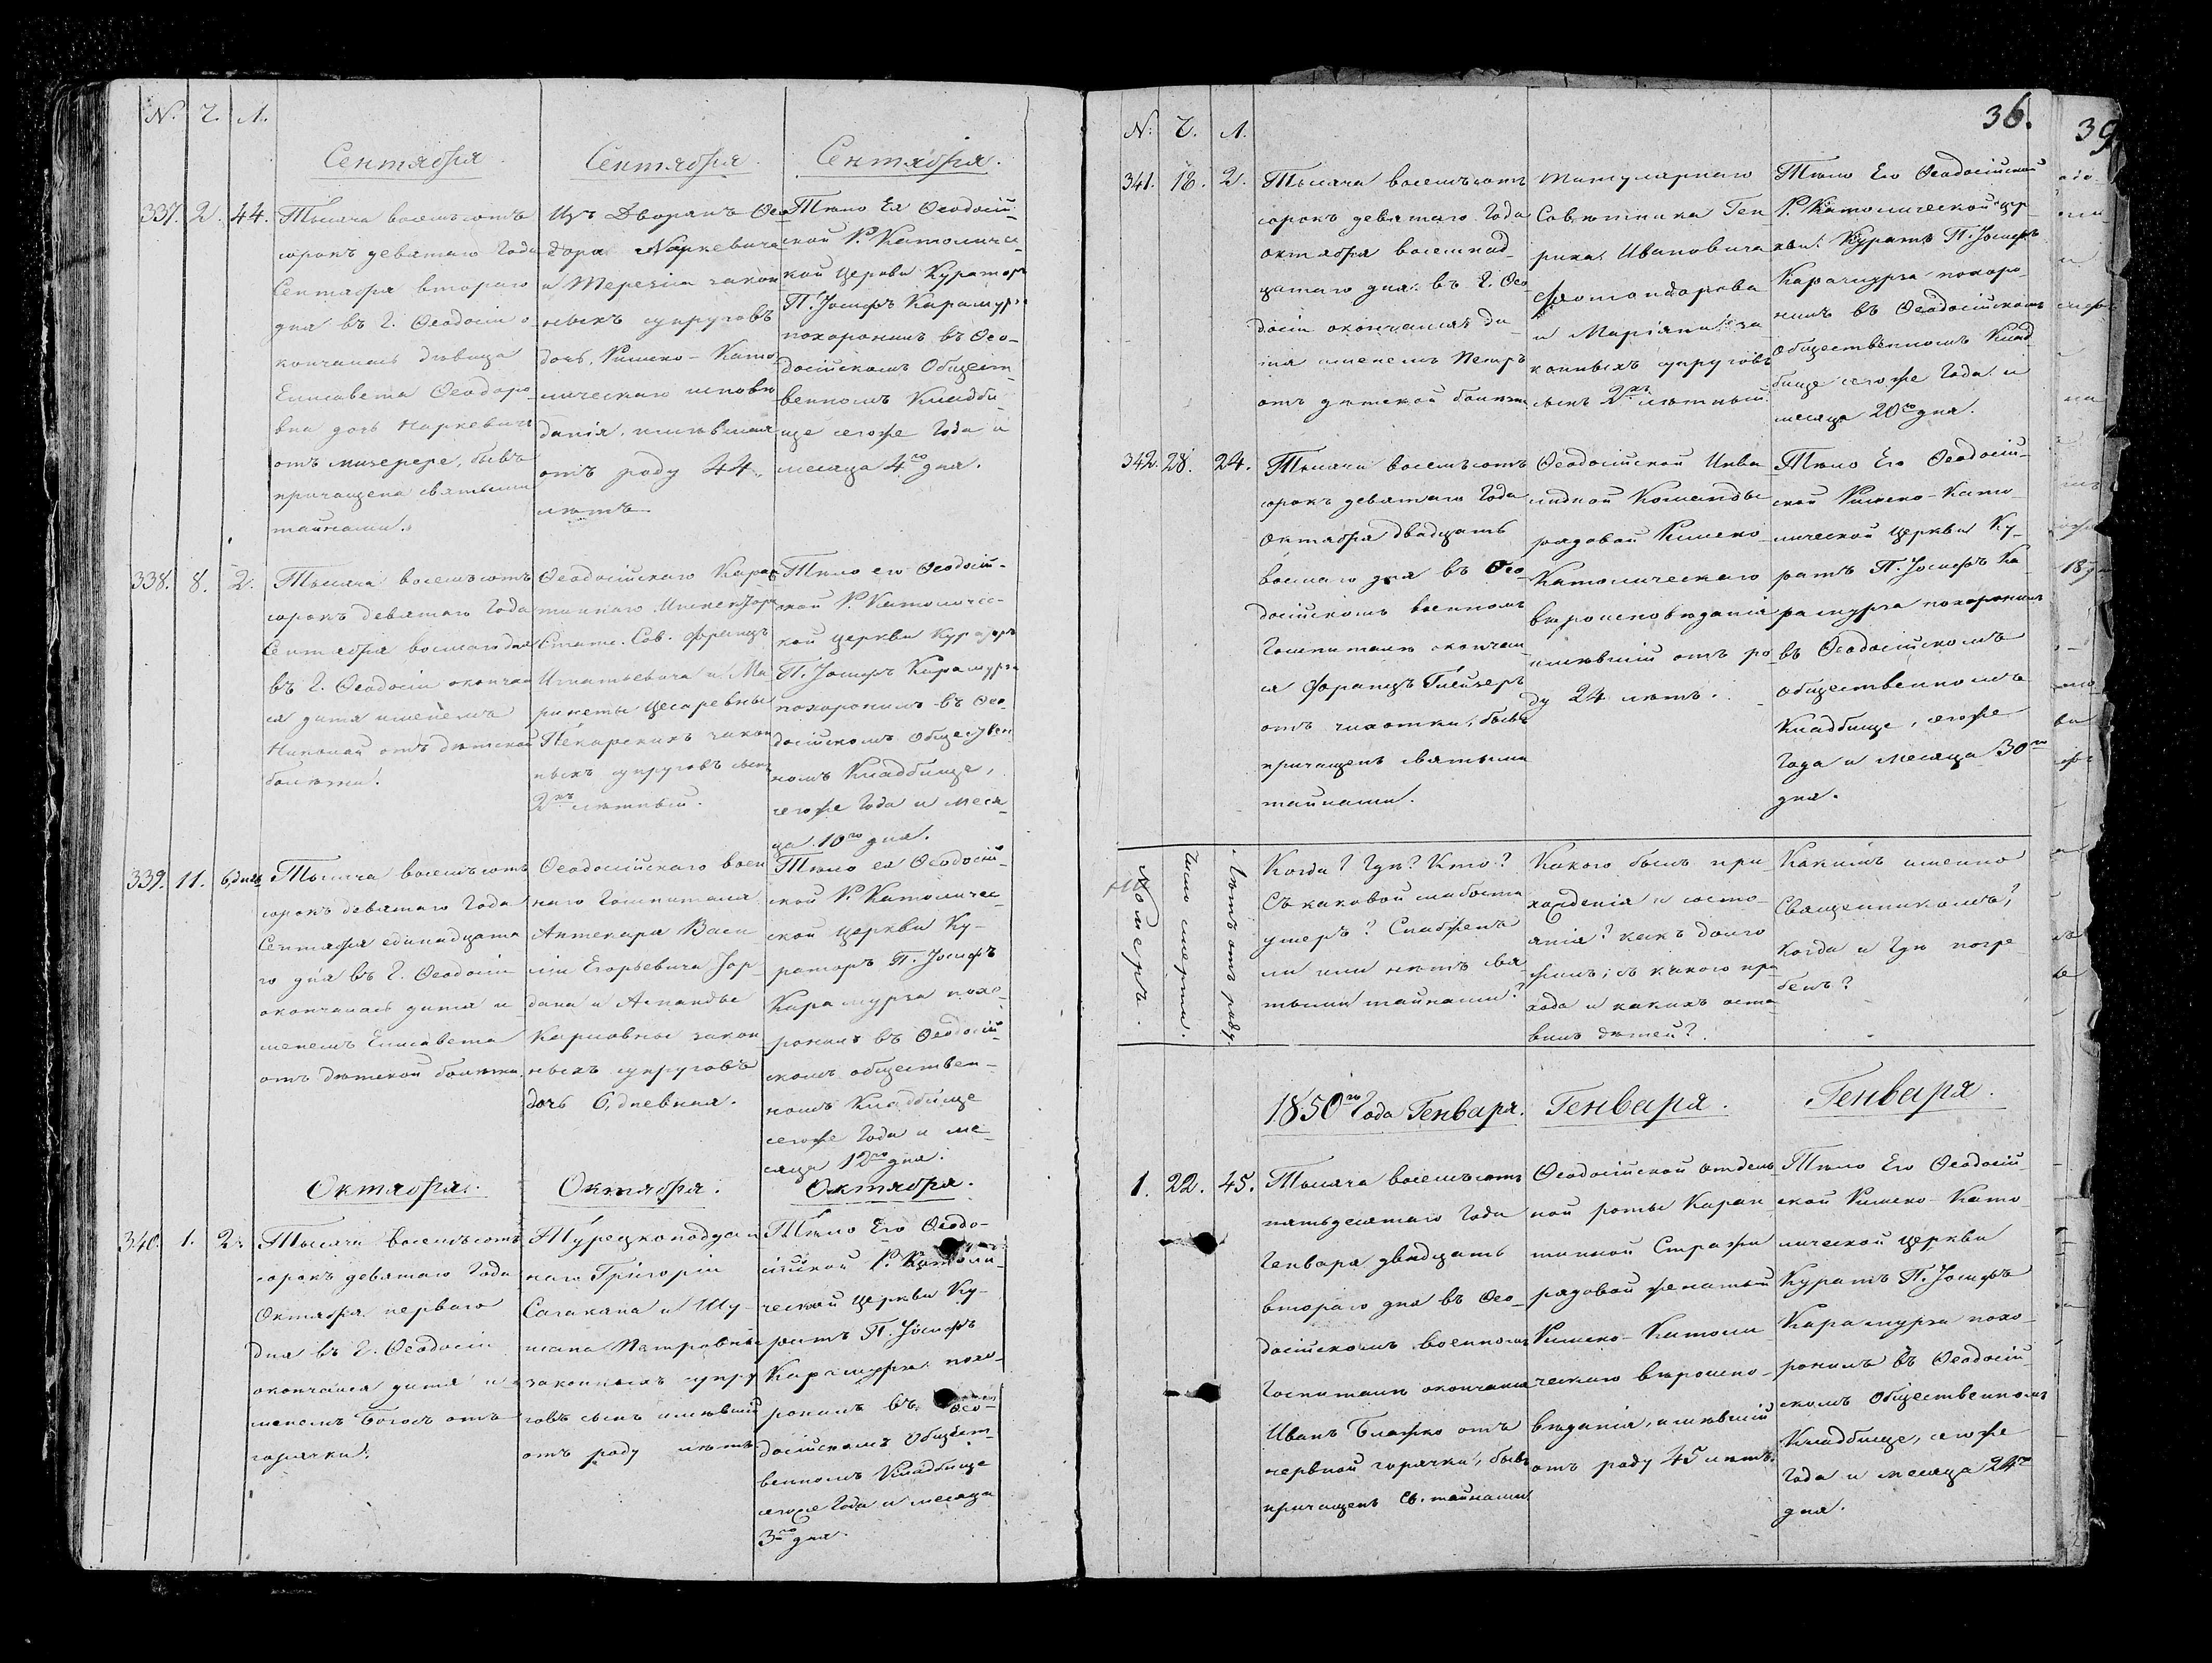 N. Ч. Л.
Сентября. Сентября. Сентября.
337. 2. 44.
Тысяча восемьсотъ
сорокъ девятаго Года
Сентября втораго
дня въ Г. Ѳеодосіи о
кончалась дѣвица
Елисавета Ѳеодоро
вна дочь Наркевичъ
отъ мизерере, бывъ
причащена святыми
тайнами.
Изъ Дворянъ Ѳео
дора Наркевича
и Терезіи закон
ныхъ супруговъ
дочь, Римско-Като
лическаго исповѣ
данія, имѣвшая
отъ роду 44
лѣтъ
Тѣло Ея Ѳеодосій
ской Р. Католичес
кой Церкви Кураторъ
П. Іосифъ Карамурза
похоронилъ въ Ѳео-
досійскомъ Общест
венномъ Кладби
ще тогоже Года и
месяца 4го дня.
338. 8. 2.
Тысяча восемьсотъ
сорокъ девятаго Года
Сентября восмаго дня
въ Г. Ѳеодосіи окончал
ся дитя именемъ
Николай отъ дѣтской
болѣзни.
Ѳеодосійскаго Каран
тиннаго Инспектора
Статс. Сов. Францъ
Игнатьевича и Ма
ріэты Цесаревны
Пекарскихъ закон
ныхъ супруговъ сынъ
2хъ лѣтный.
Тѣло его Ѳеодосій-
ской Р. Католичес-
кой церкви Кураторъ
П. Іосифъ Карамурза
похоронилъ въ Ѳео
досійскомъ общественномъ
Кладбище,
тогоже Года и меся
ца 10го дня.
339. 11. 6, днев.
Тысяча восемьсотъ
сорокъ девятаго Года
Сентября единадцата
го дня въ Г. Ѳеодосіи
окончалась дитя и
менемъ Елисавета
отъ дѣтской болѣзни.
Ѳеодосійскаго воен
наго Гошпиталя
Аптекаря Васи
лія Егорьевича Іор
дана и Аманды
Карловны закон
ныхъ супруговъ
дочь 6, дневная.
Тѣло ея Ѳеодосій
ской Р. Католичес-
ской церкви Ку-
раторъ П. Іосифъ
Карамурза похо-
ронилъ въ Ѳеодосій
скомъ обществен-
номъ Кладбище
тогоже Года и ме
сяца 12го дня.
Октября. Октября. Октября.
340. 1. 2.
Тысяча восемьсотъ
сорокъ девятаго Года
Октября перваго
дня въ Г. Ѳеодосіи
окончался дитя и
менемъ Богосъ отъ
горячки.
Турецкоподдан
наго Григорія
Сагакяна и Шу-
шана Петровны
законныхъ супру
говъ сынъ имѣвшій
отъ роду лѣтъ
Тѣло Его Ѳеодо-
сійской Р. Католи-
ческой церкви Ку-
ратъ П. Іосифъ
Карамурза похо-
ронилъ въ Ѳео-
досійскомъ Общест
венномъ Кладбище
тогоже Года и месяца
3го дня.
36.
39
N. Ч. Л.
341. 18. 2.
Тысяча восемьсотъ
сорокъ девятаго Года
октября восемнад
цатаго дня въ Г. Ѳео
досіи окончался ди
тя именемъ Петръ
отъ дѣтской болѣзни
титулярнаго
Совѣтника Ген
риха Ивановича
и Маріяны за
конныхъ супруговъ
сынъ 2хъ лѣтный.
Тѣло Его Ѳеодосійской
Р. Католической цер
кви Куратъ П. Іосифъ
Карамурза похоро
нилъ въ Ѳеодосійскомъ
Общественномъ Клад
бище тогоже Года и
месяца 20го дня.
342. 28. 24.
Тысяча восемьсотъ
сорокъ девятаго Года
Октября двадцать
восмаго дня въ Ѳео
досійскомъ военномъ
Гошпиталѣ окончал
ся Францъ
отъ чихотки, бывъ
причащенъ святыми
тайнами.
Ѳеодосійской Инва
лидной Команды
рядовой Римско
Католическаго
вѣроисповѣданія
имѣвшій отъ ро
ду 24 лѣтъ.
Тѣло Его Ѳеодосій-
ской Римско-Като
лической церкви Ку-
ратъ П. Іосифъ Ка
рамурза похоронилъ
въ Ѳеодосійскомъ
общественномъ
Кладбище, тогоже
Года и месяца 30го
дня.
Номеръ.
Число смерти.
Лѣтъ отъ роду.
Когда? Гдѣ? Кто?
Съ каковой слабости
умеръ? Снабженъ
ли или нѣтъ свя
тыми тайнами?
Какого былъ про
хожденія и состо-
янія? какъ долго
жилъ; съ какого при
хода и какихъ оста
вилъ дѣтей?
Какимъ именно
Священникомъ?
когда и Гдѣ погре
бенъ?
1850го Года Генваря. Генваря. Генваря.
1. 22. 45.
Тысяча восемьсотъ
пятьдесятаго Года
Генваря двадцать
втораго дня въ Ѳео-
досійскомъ военномъ
Госпиталѣ окончался
Иванъ Блажко отъ
нервной горячки, бывъ
причащенъ Св. тайнами
Ѳеодосійской отдель
ной роты Каран
тинной Стражи
рядовой женатый
Римско-Католи
ческаго вѣроиспо-
вѣданія, имѣвшій
отъ роду 45 лѣтъ.
Тѣло Его Ѳеодосій
ской Римско-Като
лической церкви
Куратъ П. Іосифъ
Карамурза похо-
ронилъ въ Ѳеодосій
скомъ Общественномъ
Кладбище, тогоже
Года и месяца 24го
дня.